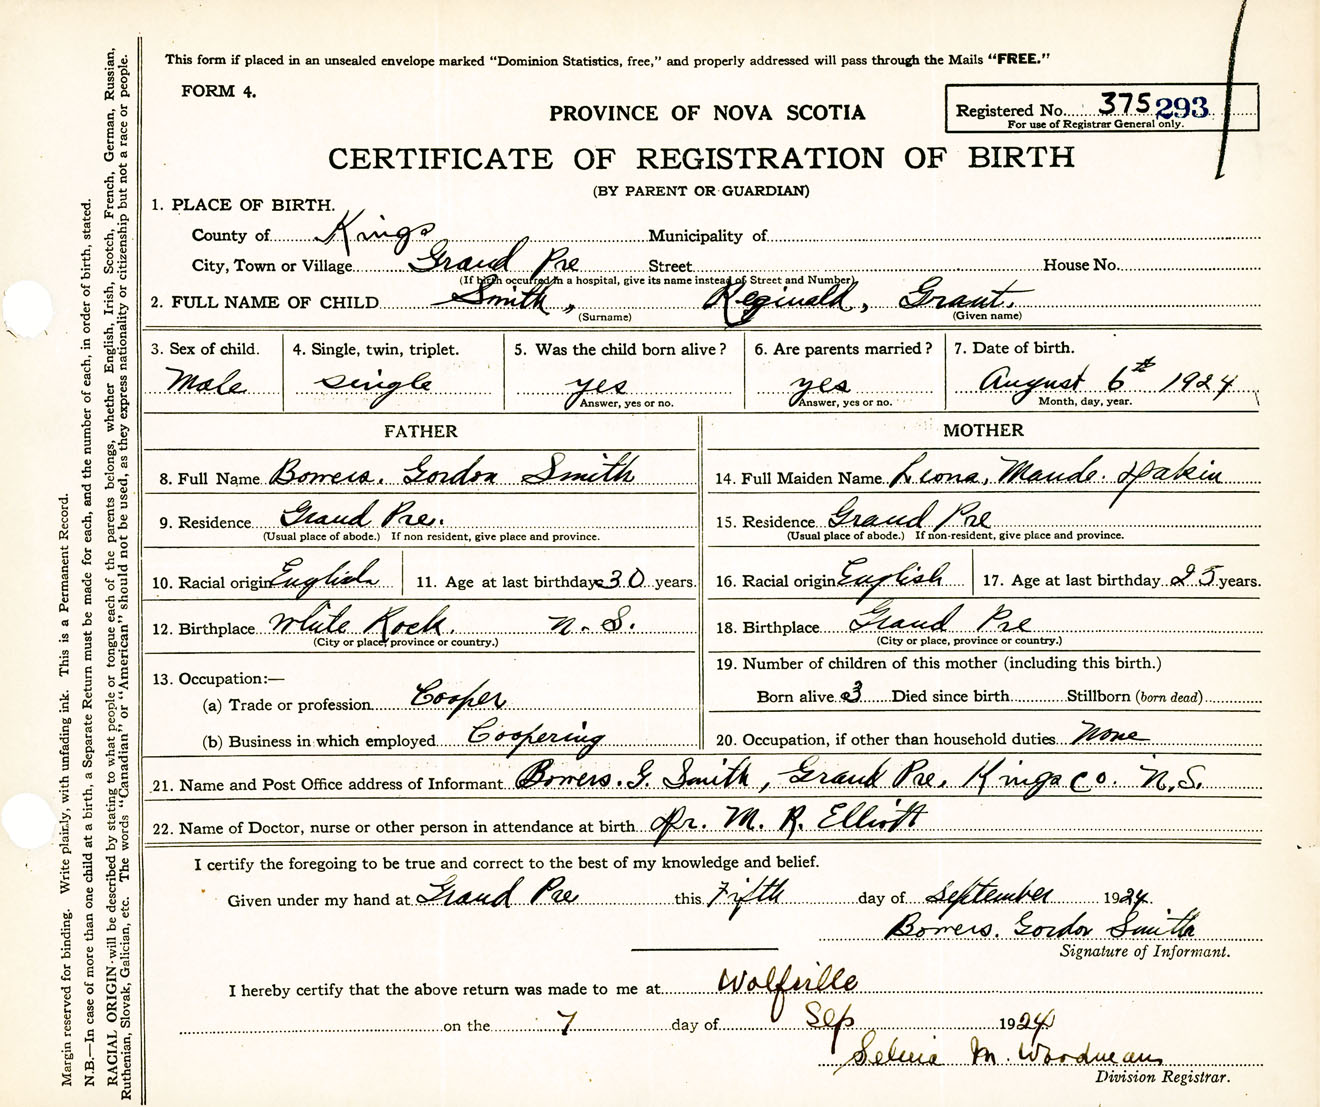 This form if placed in an unsealed envelope marked "Dominion Statistics, free," and properly addressed will pass through the Mails "FREE."
FORM 4.
PROVINCE OF NOVA SCOTIA
Registered No. 375 293
For use of Registrar General only.
CERTIFICATE OF REGISTRATION OF BIRTH
(BY PARENT OR GUARDIAN)
1. PLACE OF BIRTH.
County of Kings Municipality of
City, Town or Village Grand Pre Street House No.
(If birth occurred in a hospital, give its name instead of Street and Number)
2. FULL NAME OF CHILD Smith, Reginald, Grant.
(Surname) (Given name)
3. Sex of child. 4. Single, twin, triplet. 5. Was the child born alive? 6. Are parents married? 7. Date of birth.
Male single yes yes August 6th 1924
Answer, yes or no. Answer, yes or no. Month, day, year.
FATHER MOTHER
8. Full Name Bowers. Gordon Smith 14. Full Maiden Name Leona, Maude.
9. Residence Grand Pre. 15. Residence Grand Pre
(Usual place of abode.) If non resident, give place and province. (Usual place of abode.) If non-resident, give place and province.
10. Racial origin English 11. Age at last birthday 30 years. 16. Racial origin English 17. Age at last birthday 25 years.
12. Birthplace White Rock. N. S. 18. Birthplace Grand Pre
(City or place, province or country.) (City or place, province or country.)
13. Occupation:— 19. Number of children of this mother (including this birth.)
(a) Trade or profession Cooper Born alive 3 Died since birth Stillborn (born dead)
(b) Business in which employed Coopering 20. Occupation, if other than household duties None
21. Name and Post Office address of Informant Bowers. G. Smith, Grand Pre, Kings Co. N.S.
22. Name of Doctor, nurse or other person in attendance at birth Dr. M. R. Elliott
I certify the foregoing to be true and correct to the best of my knowledge and belief.
Given under my hand at Grand Pre this Fifth day of September 1924.
Bowers. Gordon Smith
Signature of Informant.
I hereby certify that the above return was made to me at Wolfville
on the 7 day of Sep 1924
M. Woodman
Division Registrar.
Margin reserved for binding. Write plainly, with unfading ink. This is a Permanent Record.
N.B.—In case of more than one child at a birth, a Separate Return must be made for each, and the number of each, in order of birth, stated.
RACIAL ORIGIN will be described by stating to what people or tongue each of the parents belongs, whether English, Irish, Scotch, French, German, Russian,
Ruthenian, Slovak, Galician, etc. The words "Canadian" or "American" should not be used, as they express nationality or citizenship but not a race or people.